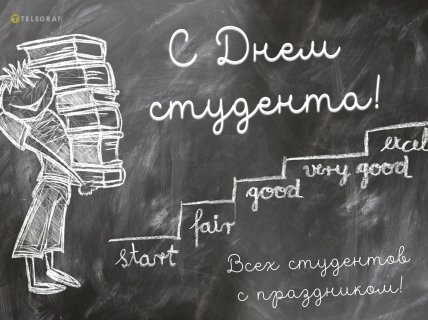 TELEGRAF
С Днем
студента!
start
fair
good
very good
Всех студентов
с праздником!